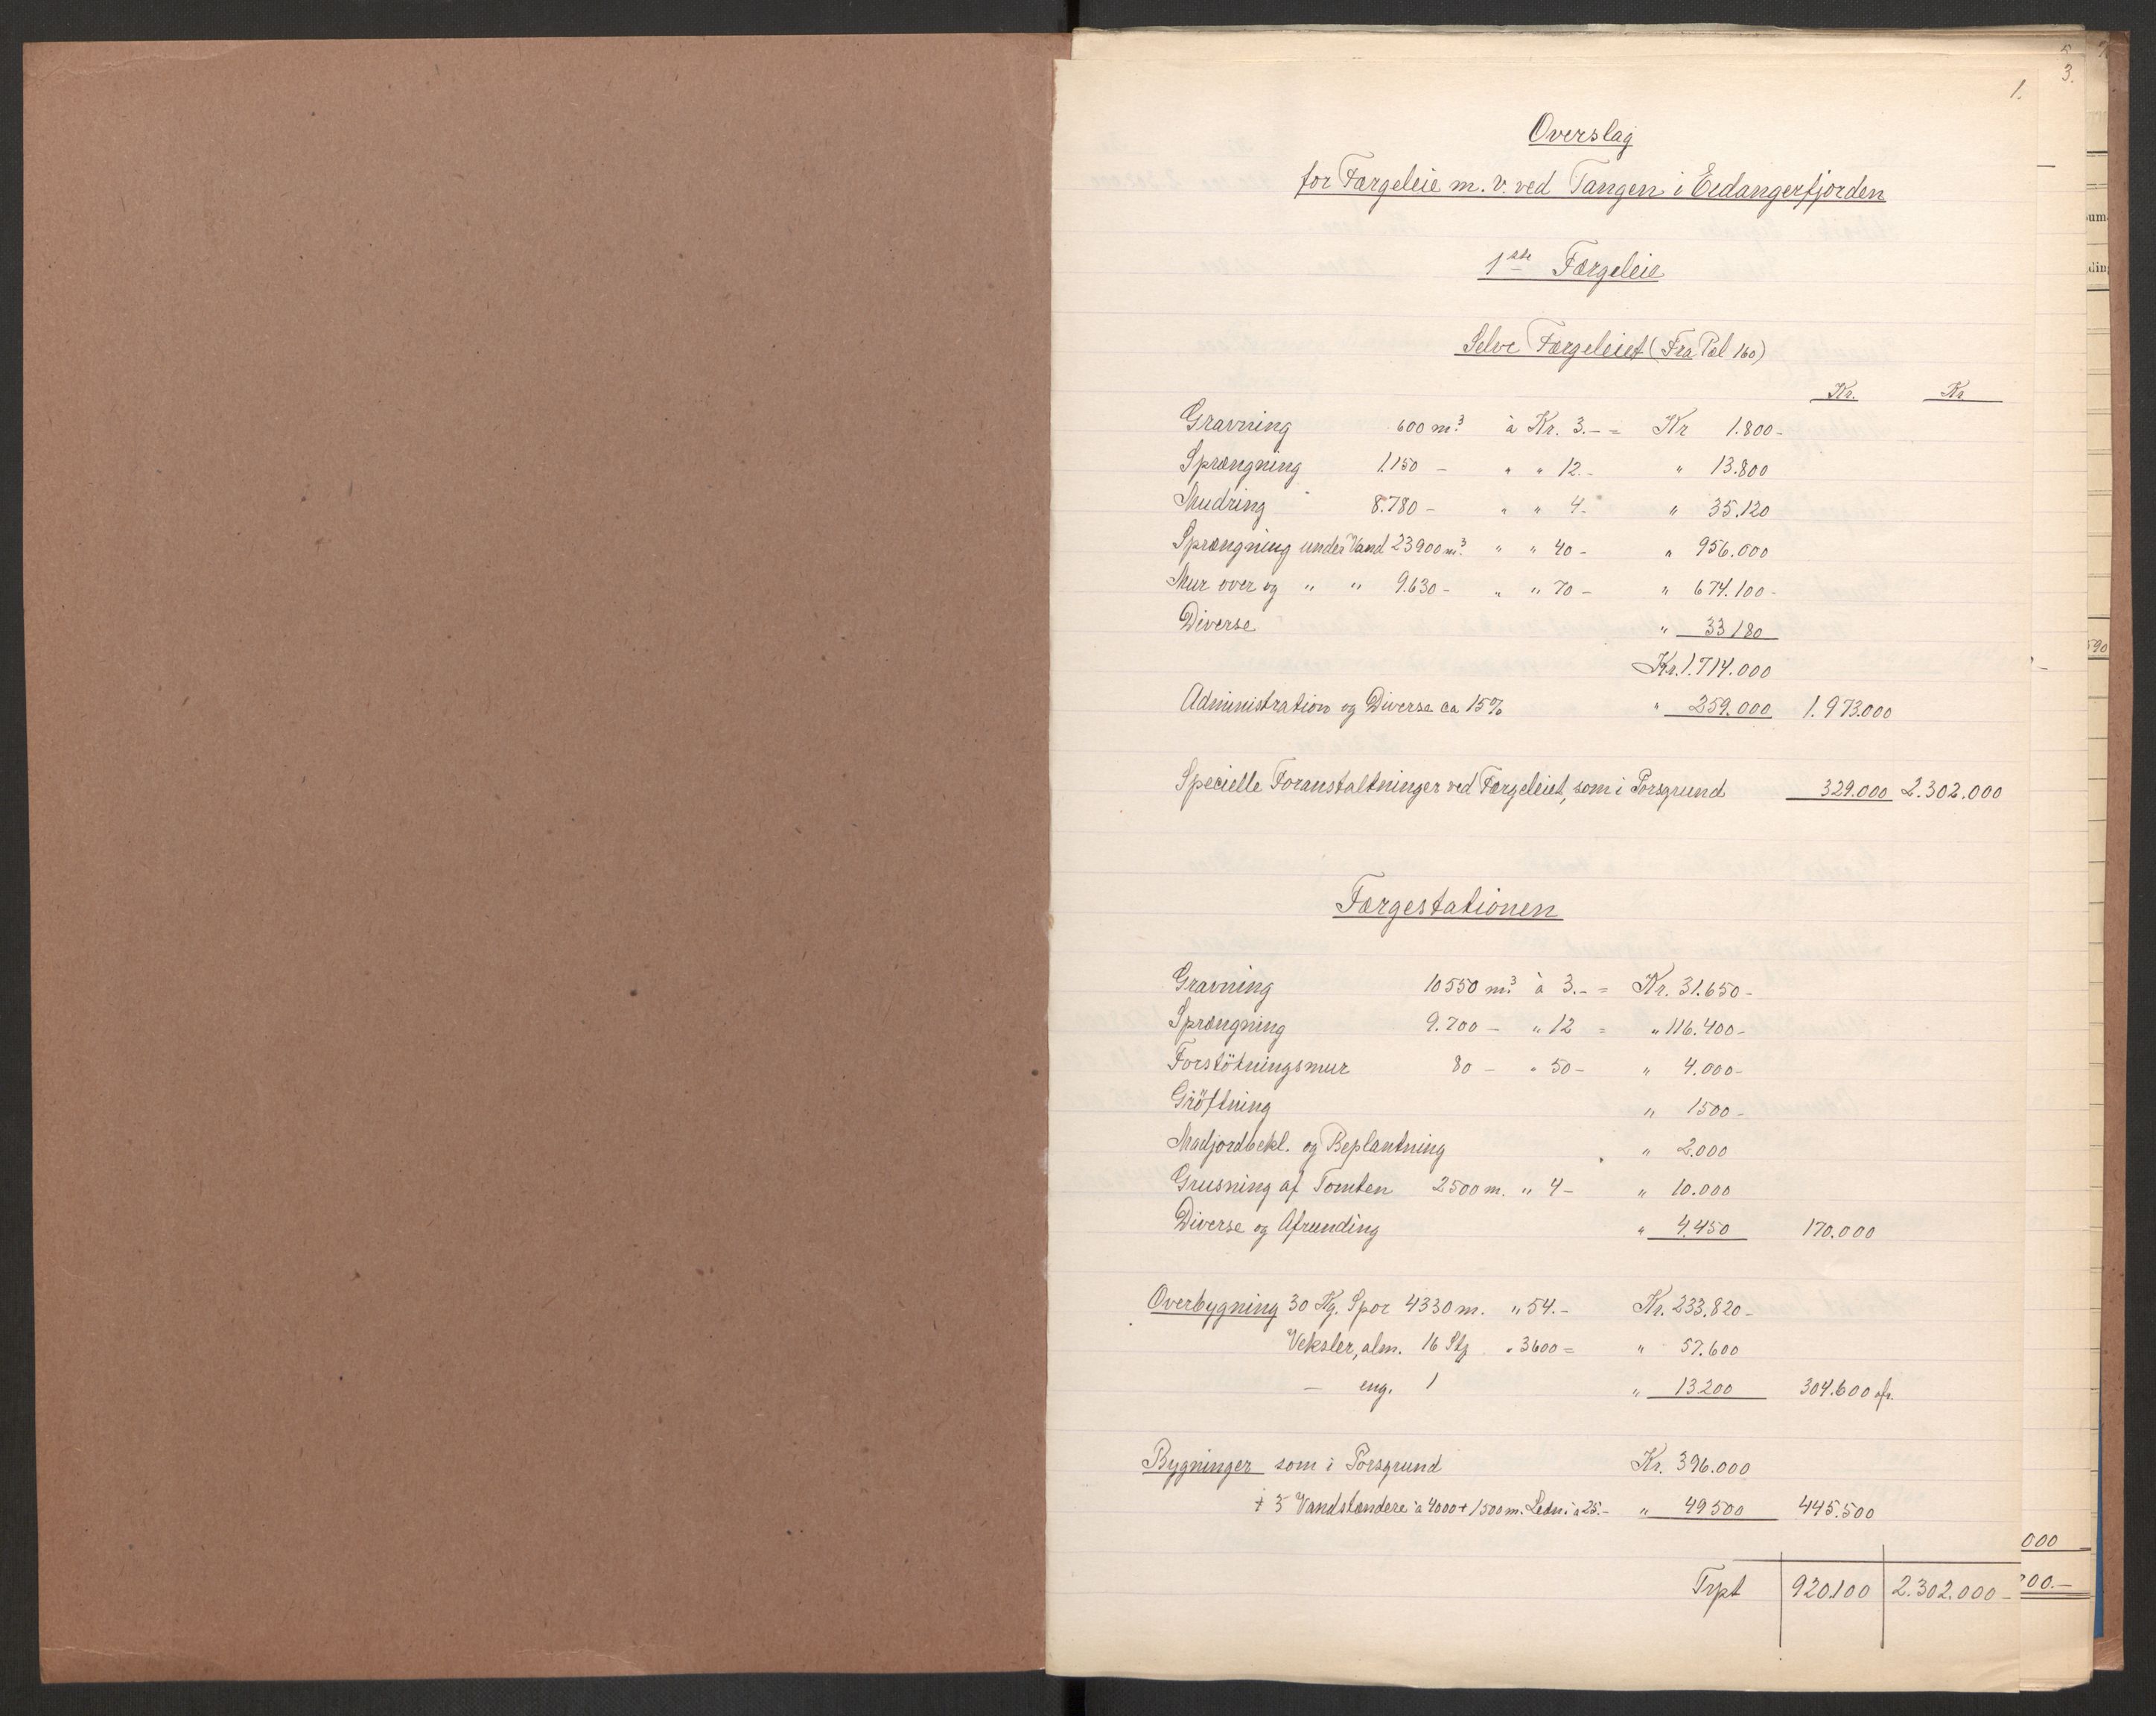 1.
3.
Overslag
for Færgeleie m.v. ved Tangen i Eidangerfjorden
1ste Færgeleie
Selve Færgeleiet (Fra Pel 160)
Kr. Kr
Gravning 600 m³ à Kr. 3.- = Kr 1.800-
Sprængning 1.150 - " " 12.- " 13.800
Mudring 8.780 - " " 4.- " 35.120
Sprængning under Vand 23900 m³. " " 40 - " 956.000
Mur over og " " 9.630 - " " 70 - " 674.100-
Diverse " 33180
Kr. 1.714.000
Administration og Diverse ca 15% " 259.000 1.973.000
Specielle Foranstaltninger ved Færgeleiet, som i Porsgrund 329.000 2.302.000
Færgestationen
Gravning 10550 m³. à 3.- = Kr. 31.650-
Sprængning 9.700 - " 12 = " 116.400-
Forstötningsmur 80 - " 50 - " 4.000-
Gröftning " 1500-
Madjordbekl. og Beplantning " 2.000
Grusning af Tomten 2500 m. " 4- " 10.000
Diverse og Afrunding " 4.450 170.000
Overbygning 30 Kg. Spor 4330 m. " 54.- Kr. 233.820-
Veksler, alm. 16 Stk " 3600 = " 57.600
- eng. 1 " 13.200 304.600 afr.
Bygninger som i Porsgrund Kr. 396.000
+ 3 Vandstændere à 4000 + 1500 m. Ledn. à 25.- " 49500 445.500
000
Trpt 920.100 2.302.000-
00.-
um
din
590